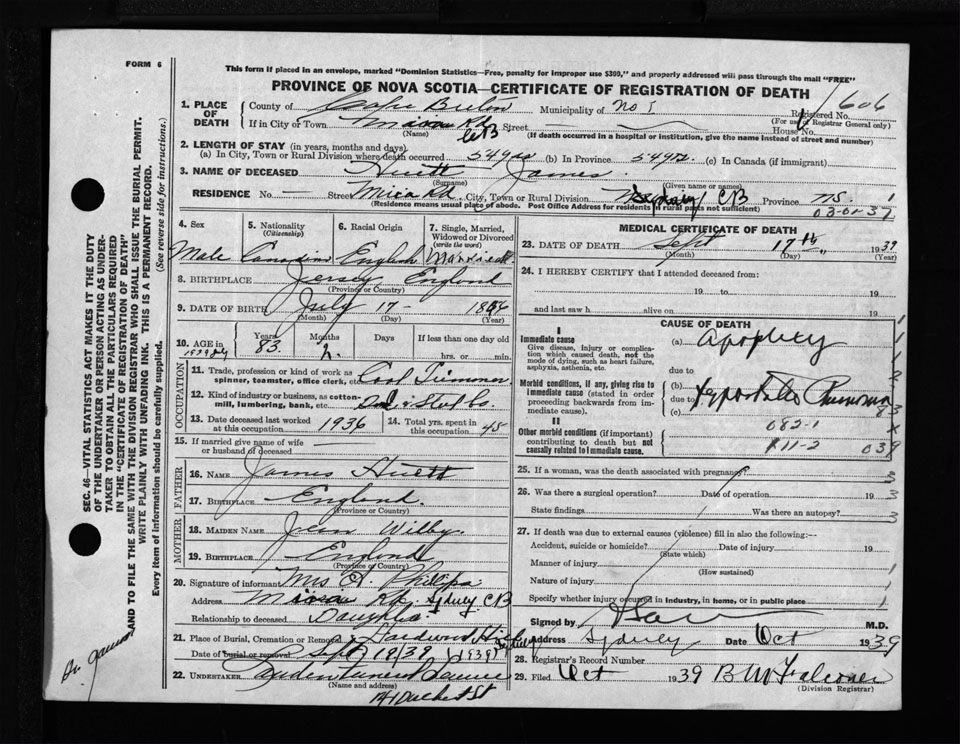 FORM 6
This form if placed in an envelope, marked "Dominion Statistics—Free, penalty for improper use $300," and properly addressed will pass through the mail "FREE"
PROVINCE OF NOVA SCOTIA—CERTIFICATE OF REGISTRATION OF DEATH
1606
1. PLACE OF DEATH
County of Cape Breton Municipality of No 1 Registered No.
(For use of Registrar General only)
If in City or Town Rd CB Street House No.
(Name) (If death occurred in a hospital or institution, give the name instead of street and number)
2. LENGTH OF STAY (in years, months and days)
(a) In City, Town or Rural Division where death occurred 54 yrs (b) In Province 54 yrs (c) In Canada (if immigrant)
3. NAME OF DECEASED Hiett James
(Surname) (Given name or names)
RESIDENCE No. — Street Mira Rd City, Town or Rural Division Sydney CB Province N.S. 1
(Residence means usual place of abode. Post Office Address for residents in rural parts not sufficient) 03-01-37
4. Sex
5. Nationality
(Citizenship)
6. Racial Origin
7. Single, Married, Widowed or Divorced
(write the word)
Male Canadian English Married
8. BIRTHPLACE Jersey England
(Province or Country)
9. DATE OF BIRTH July 17 - 1856
(Month) (Day) (Year)
10. AGE in
Years Months Days If less than one day old
83 2 hrs. or min.
OCCUPATION
11. Trade, profession or kind of work as spinner, teamster, office clerk, etc. Coal Trimmer
12. Kind of industry or business, as cotton-mill, lumbering, bank, etc.
13. Date deceased last worked at this occupation 1936 14. Total yrs. spent in this occupation 45
15. If married give name of wife or husband of deceased
FATHER
16. NAME James Hiett
17. BIRTHPLACE England
(Province or Country)
MOTHER
18. MAIDEN NAME Jean Wilby
19. BIRTHPLACE England
(Province or Country)
20. Signature of informant Mrs
Address Rd. Sydney CB
Relationship to deceased Daughter
21. Place of Burial, Cremation or Removal Hardwood Hill Sydney
Date of burial or removal Sept 19/39 1939
22. UNDERTAKER
(Name and address)
MEDICAL CERTIFICATE OF DEATH
23. DATE OF DEATH Sept 17th 1939
(Month) (Day) (Year)
24. I HEREBY CERTIFY that I attended deceased from:
19 to 19
and last saw h alive on 19
CAUSE OF DEATH
I
Immediate cause
Give disease, injury or complication which caused death, not the mode of dying, such as heart failure, asphyxia, asthenia, etc.
(a) Apoplexy
due to
Morbid conditions, if any, giving rise to immediate cause (stated in order proceeding backwards from immediate cause).
(b) Hypostatic Pneumonia
due to
(c)
II
Other morbid conditions (if important) contributing to death but not causally related to immediate cause.
082-1
111-2 039
25. If a woman, was the death associated with pregnancy?
26. Was there a surgical operation? Date of operation 19
State findings Was there an autopsy?
27. If death was due to external causes (violence) fill in also the following:—
Accident, suicide or homicide? Date of injury 19
(State which)
Manner of injury
(How sustained)
Nature of injury
Specify whether injury occurred in industry, in home, or in public place
Signed by M.D.
Address Sydney Date Oct 1939
28. Registrar's Record Number
29. Filed Oct 1939 B W Falconer
(Division Registrar)
SEC. 46—VITAL STATISTICS ACT MAKES IT THE DUTY OF THE UNDERTAKER OR PERSON ACTING AS UNDERTAKER TO OBTAIN ALL THE PARTICULARS REQUIRED IN THE "CERTIFICATE OF REGISTRATION OF DEATH" AND TO FILE THE SAME WITH THE DIVISION REGISTRAR WHO SHALL ISSUE THE BURIAL PERMIT.
WRITE PLAINLY WITH UNFADING INK. THIS IS A PERMANENT RECORD.
Every item of information should be carefully supplied. (See reverse side for instructions.)